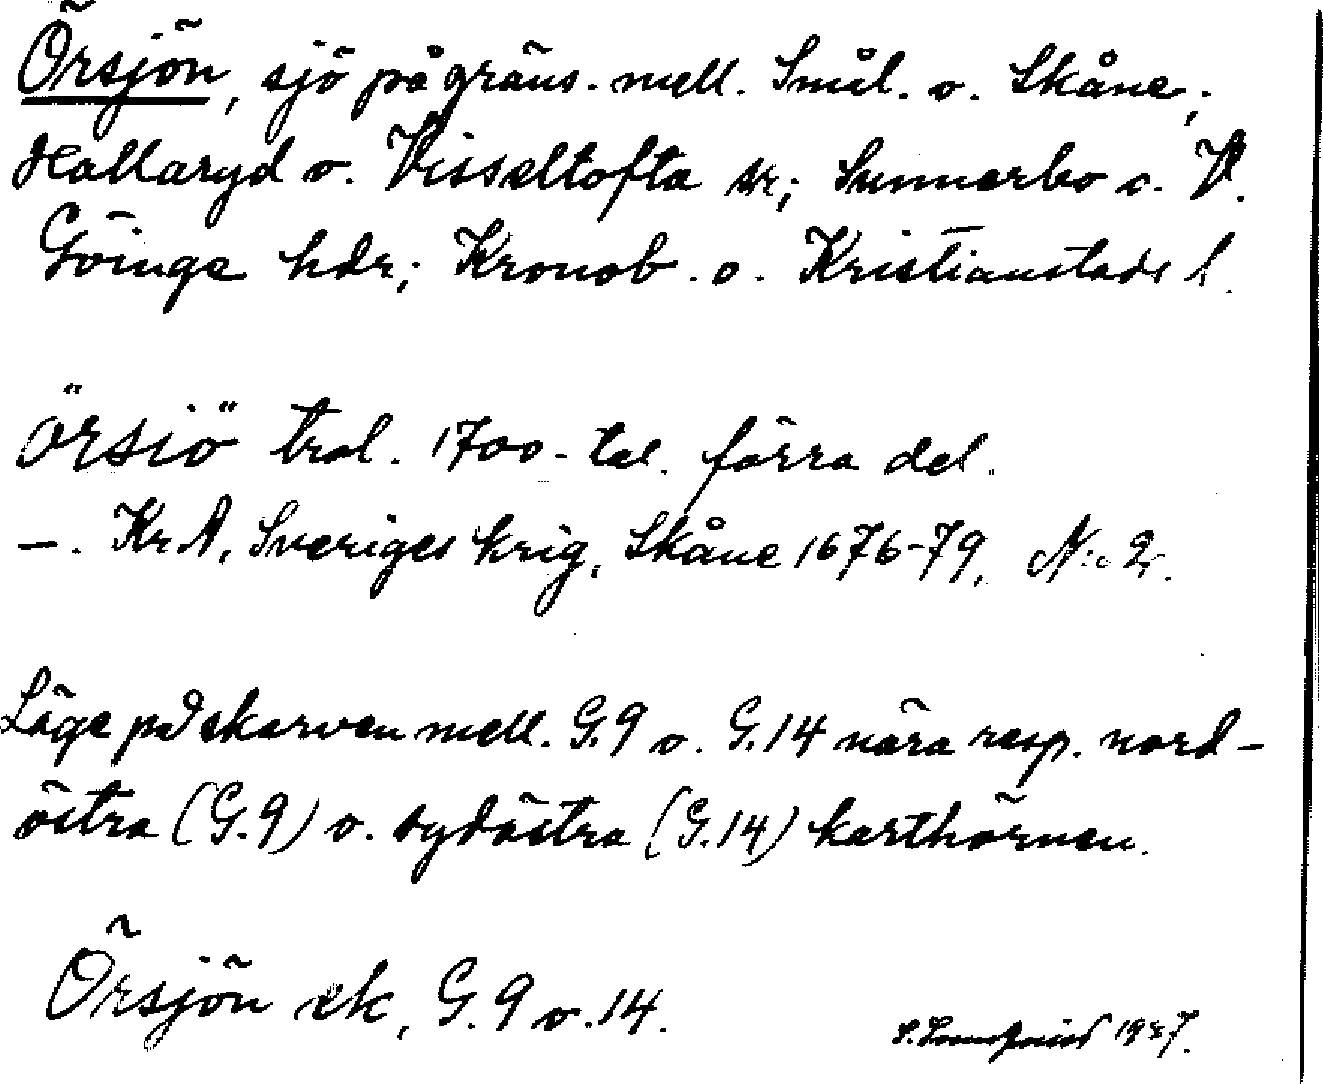 Örsjön, sjö på gräns. mell. Smål. o. Skåne,
Hallaryd o. Visseltofta sr; Sunnerbo o. V.
Göinge hdr; Kronob. o. Kristianstads l.
Örsiö trol. 1700-tal. förra del.
—. KrA, Sveriges krig, Skåne 1676-79, N:o 2.
Läge på skarven mell. G.9 o. G.14 nära resp. nord-
östra (G.9) o. sydöstra (G.14) karthörnen.
Örsjön ek, G.9 o. 14.